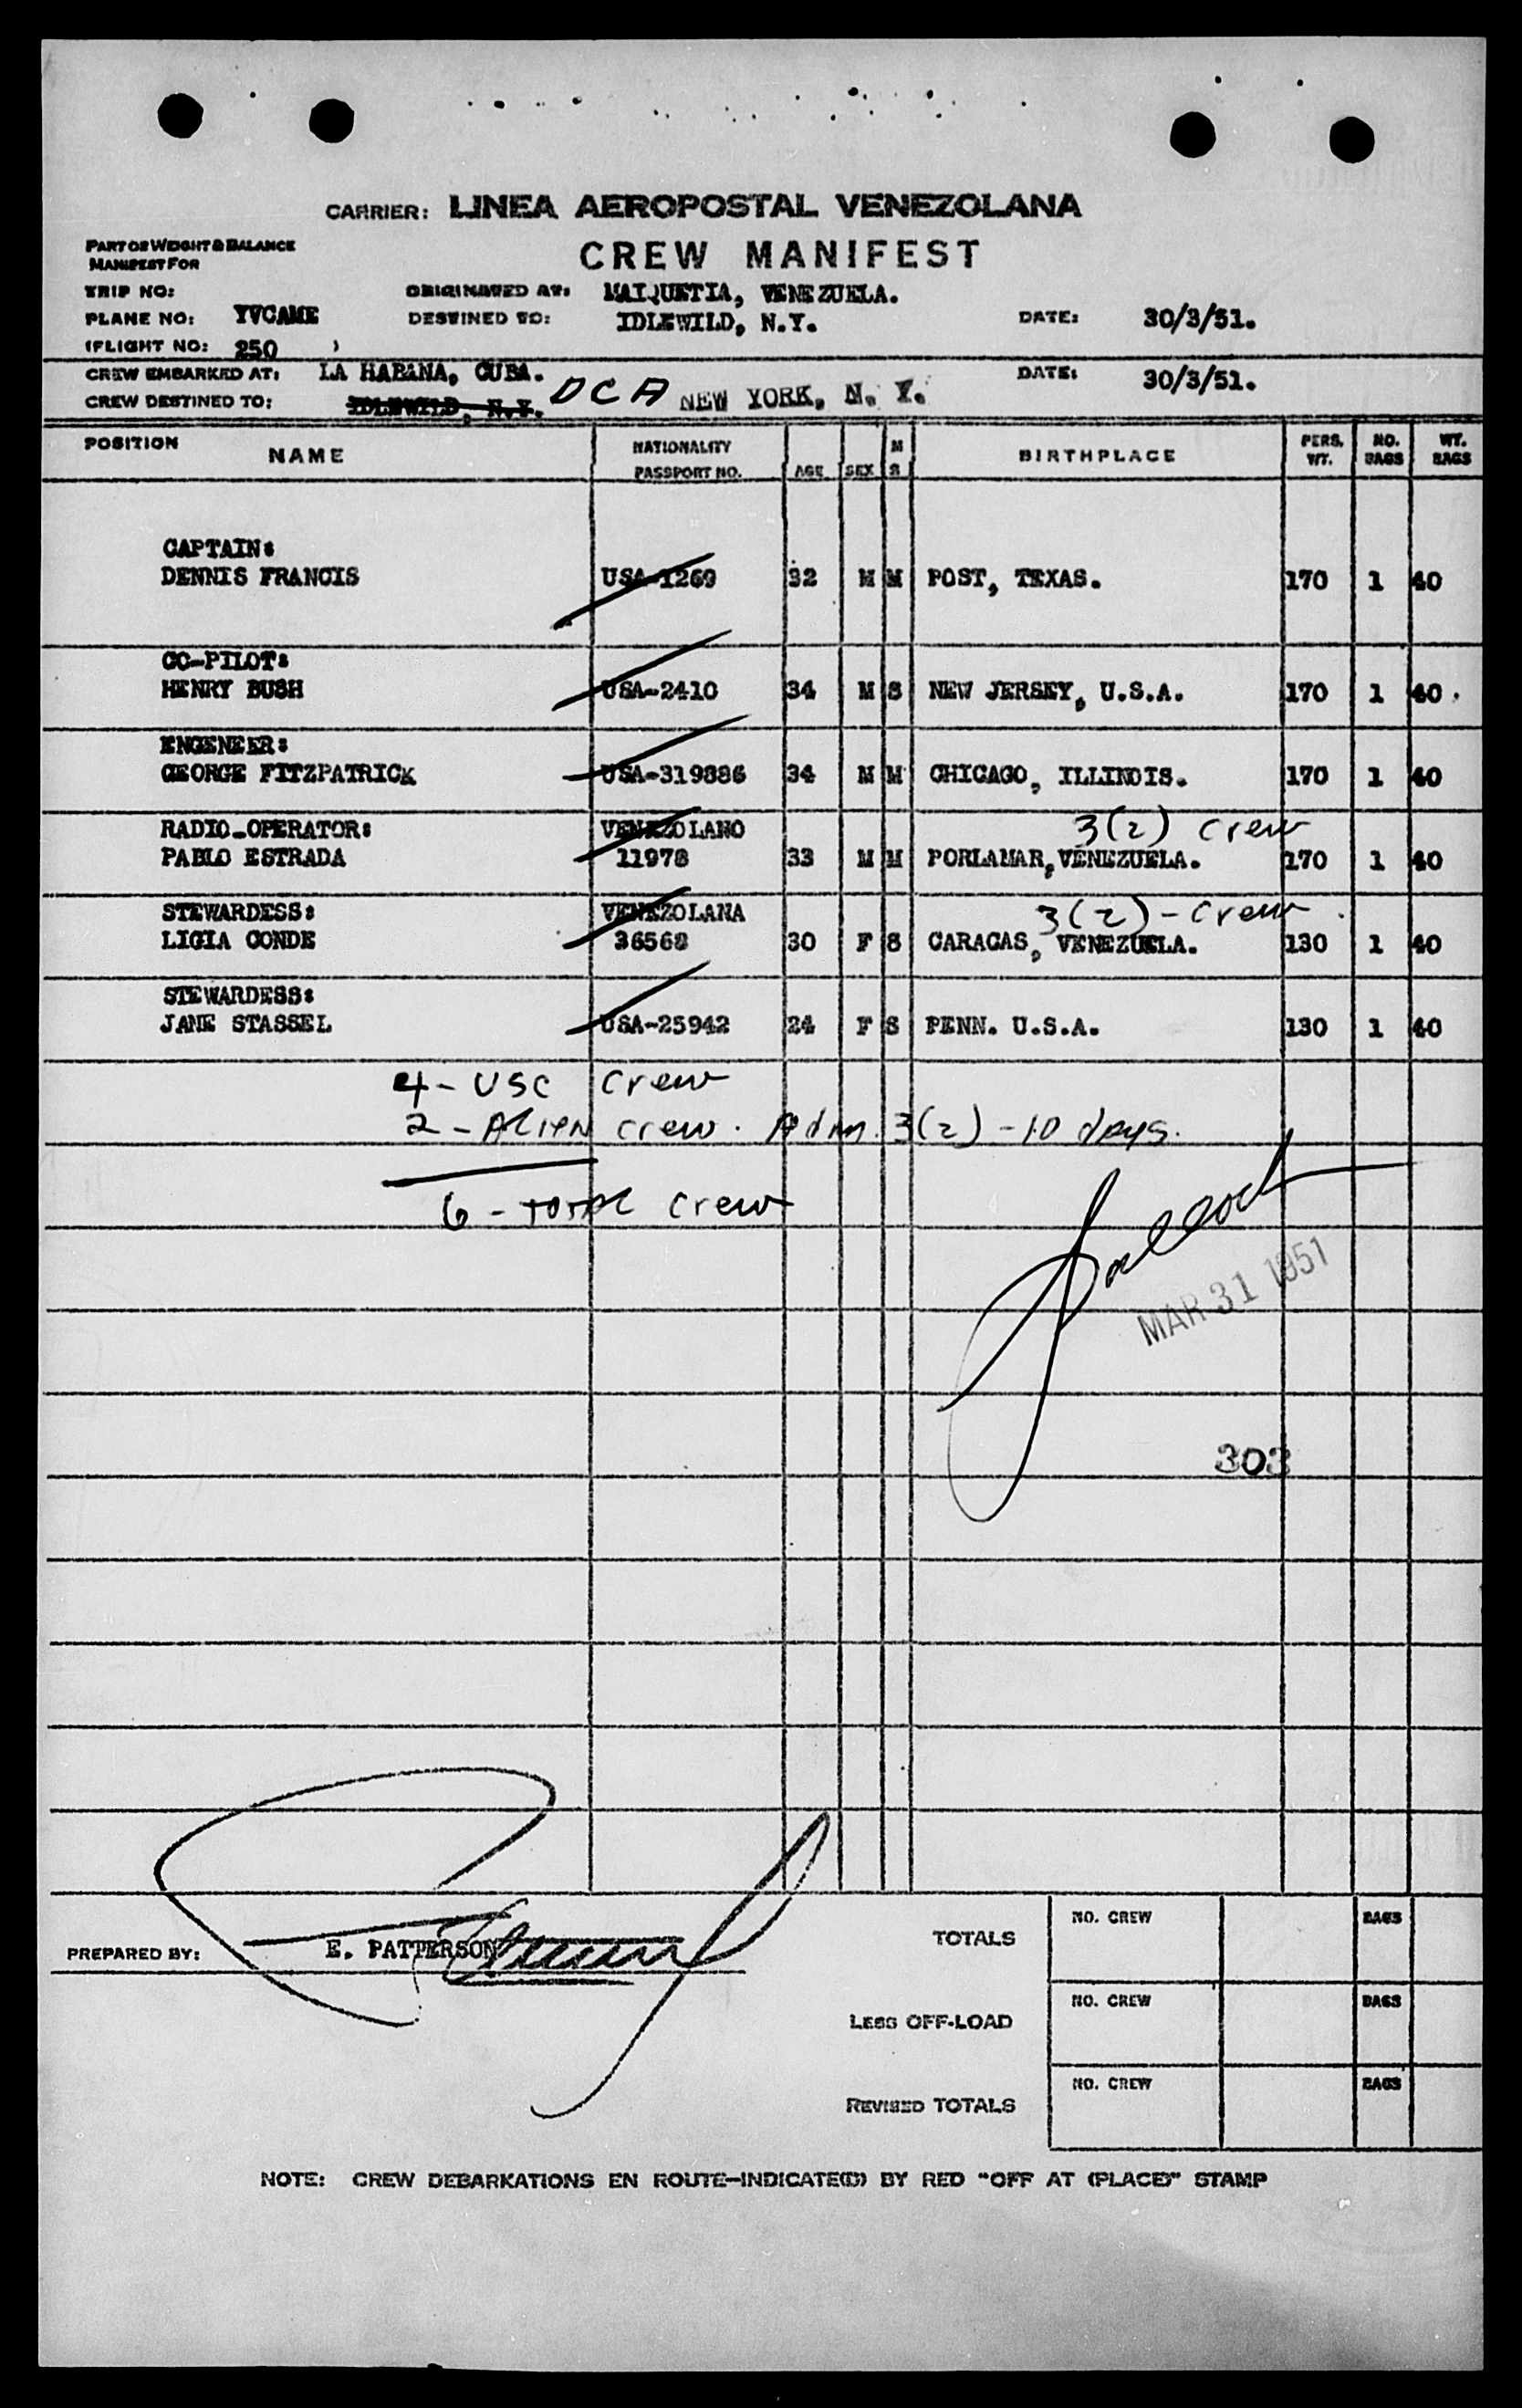 CARRIER: LINEA AEROPOSTAL VENEZOLANA
PART OF WEIGHT & BALANCE
MANIFEST FOR
CREW MANIFEST
TRIP NO: ORIGINATED AT: MAIQUETIA, VENEZUELA.
PLANE NO: YVCAME DESTINED TO: IDLEWILD, N.Y. DATE: 30/3/51.
(FLIGHT NO: 250 )
CREW EMBARKED AT: LA HABANA, CUBA. DATE: 30/3/51.
CREW DESTINED TO: IDLEWILD, N.Y. DCA NEW YORK, N. Y.
POSITION NAME NATIONALITY PASSPORT NO. AGE SEX M S BIRTHPLACE PERS. WT. NO. BAGS WT. BAGS
CAPTAIN:
DENNIS FRANCIS USA-1269 32 M M POST, TEXAS. 170 1 40
CO-PILOT:
HENRY BUSH USA-2410 34 M S NEW JERSEY, U.S.A. 170 1 40
ENGENEER:
GEORGE FITZPATRICK USA-319886 34 M M CHICAGO, ILLINOIS. 170 1 40
RADIO-OPERATOR: VENEZOLANO 3(2) crew
PABLO ESTRADA 11978 33 M M PORLAMAR, VENEZUELA. 170 1 40
STEWARDESS: VENEZOLANA 3(2)-crew
LIGIA CONDE 36568 30 F S CARACAS, VENEZUELA. 130 1 40
STEWARDESS:
JANE STASSEL USA-25942 24 F S PENN. U.S.A. 130 1 40
4 - USC crew
2 - Alien crew. Adm. 3(2) - 10 days.
6 - Total crew
MAR 31 1951
303
PREPARED BY: E. PATTERSON
TOTALS NO. CREW BAGS
LESS OFF-LOAD NO. CREW BAGS
REVISED TOTALS NO. CREW BAGS
NOTE: CREW DEBARKATIONS EN ROUTE-INDICATE(D) BY RED "OFF AT (PLACE)" STAMP